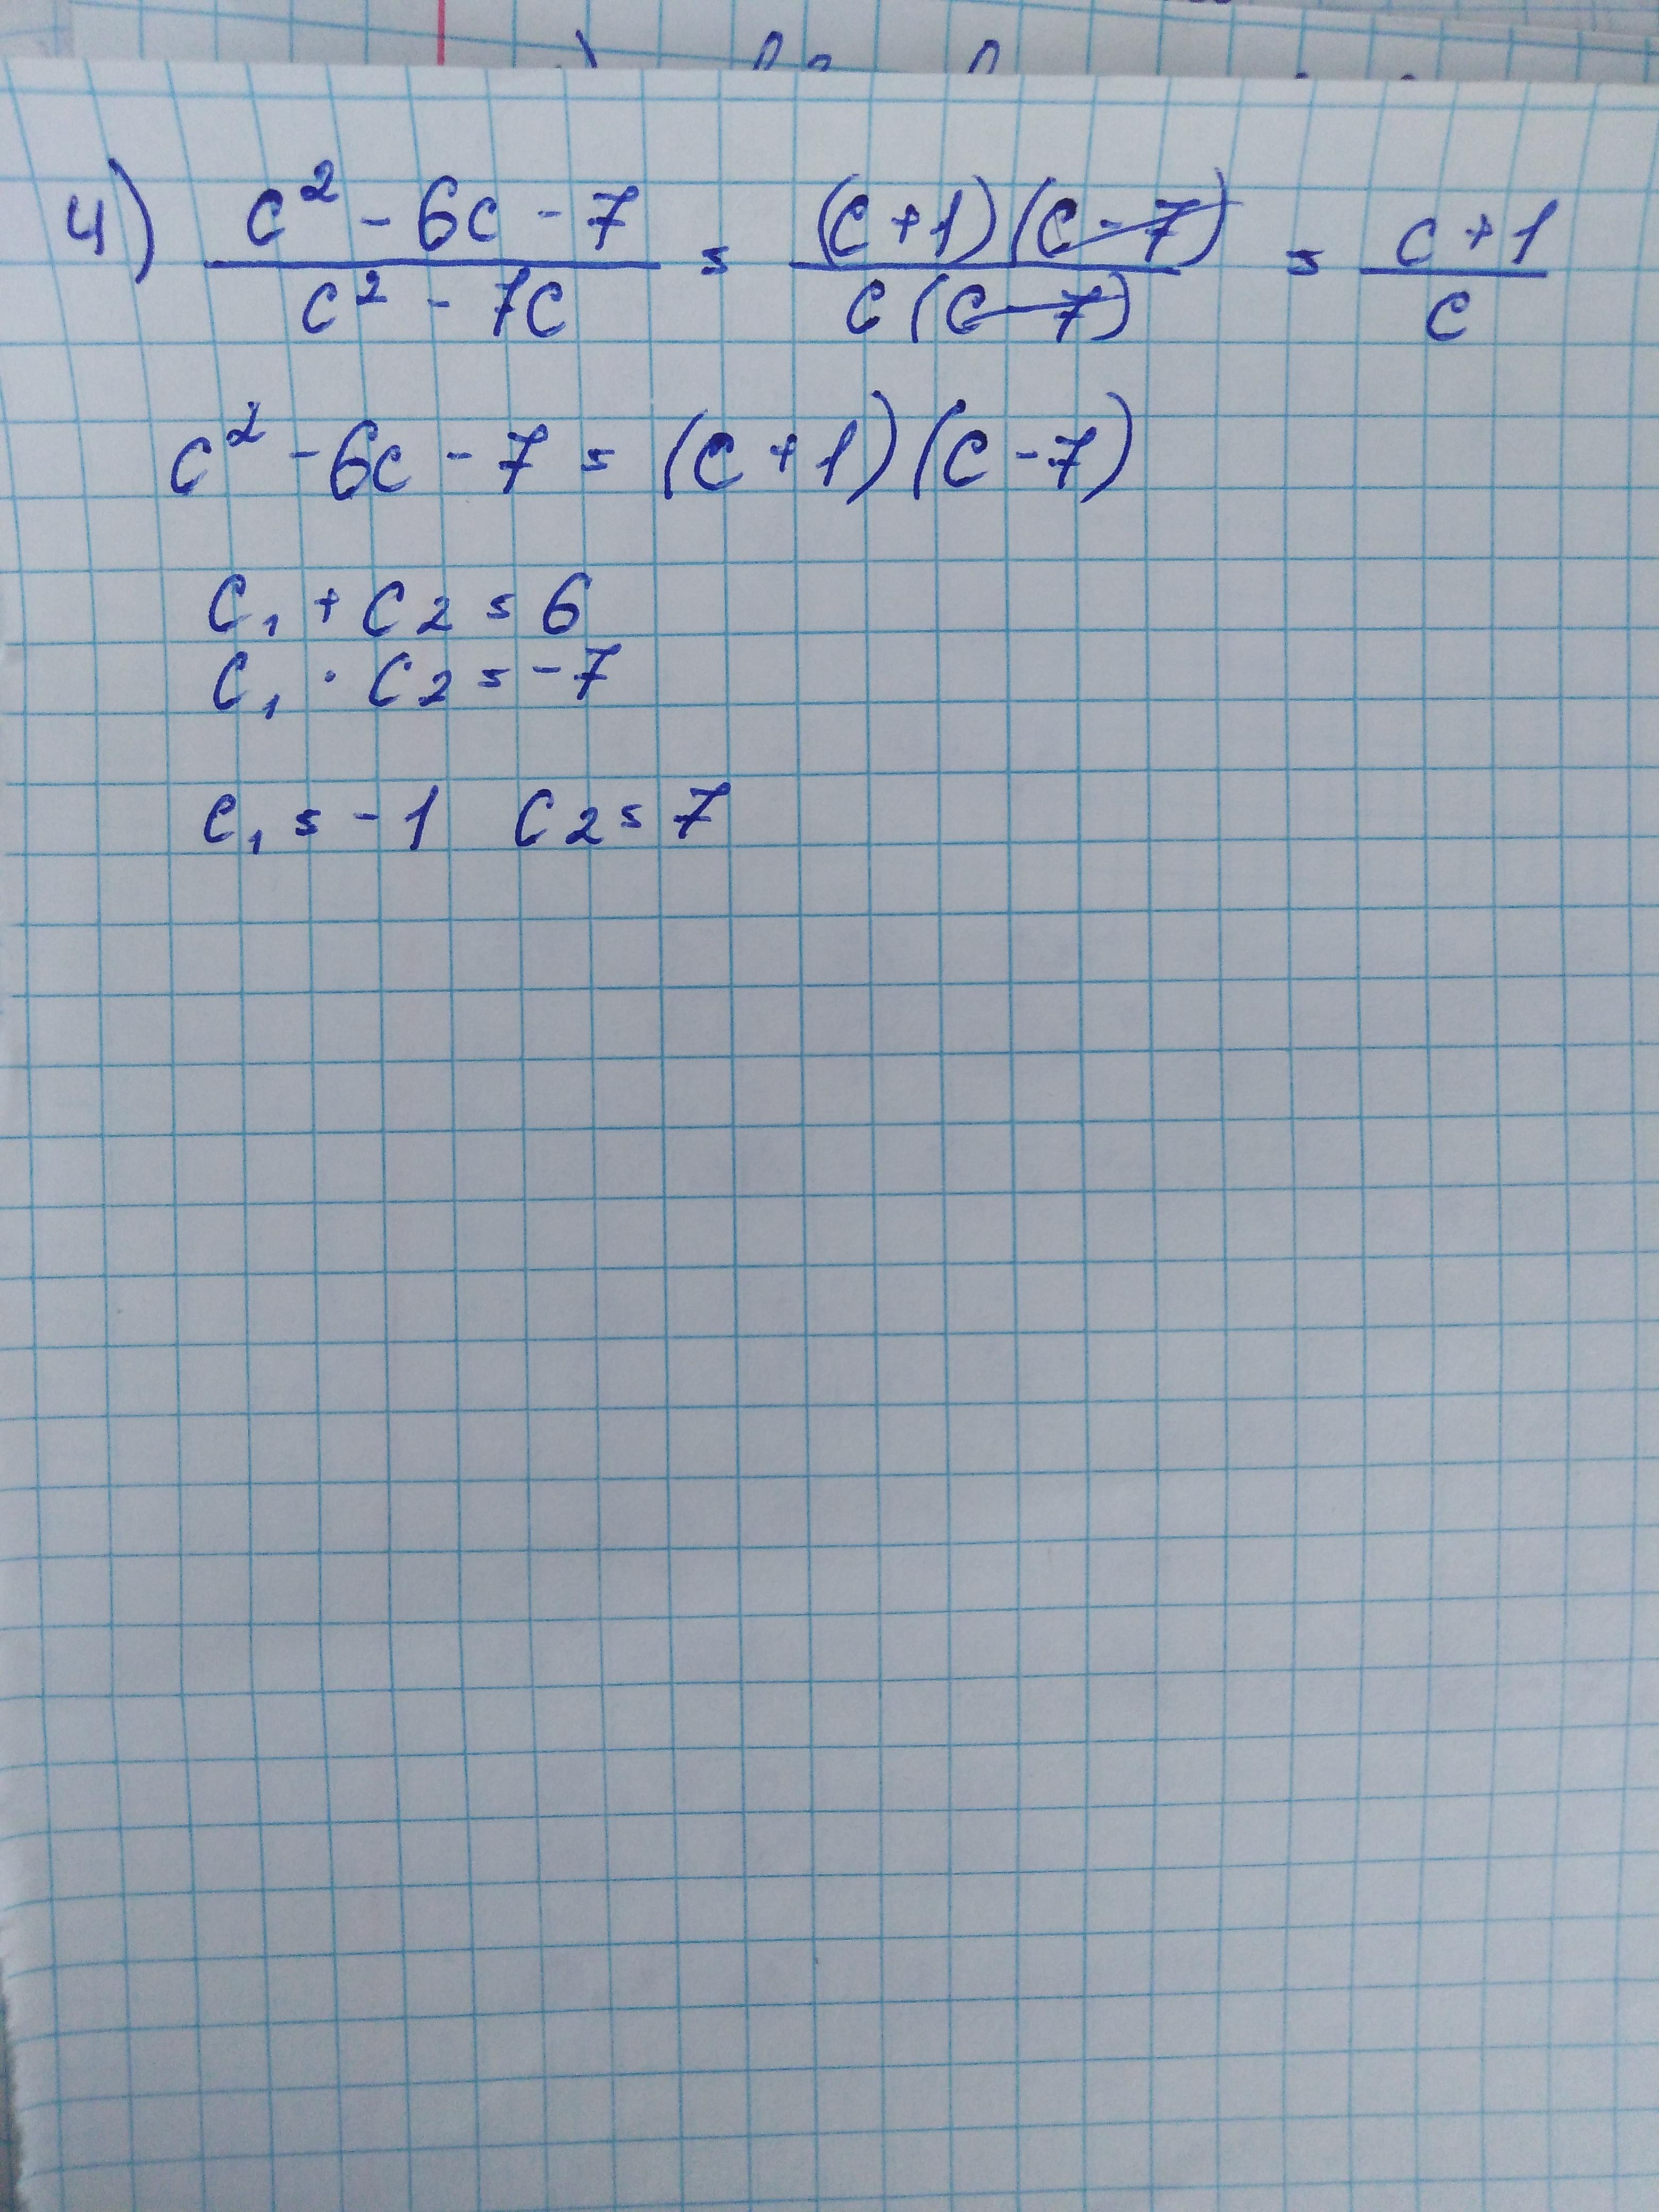 4) (c² - 6c - 7)/(c² - 7c) = ((c+1)(c-7))/(c(c-7)) = (c+1)/c
c² - 6c - 7 = (c+1)(c-7)
c₁ + c₂ = 6
c₁ · c₂ = -7
c₁ = -1 c₂ = 7